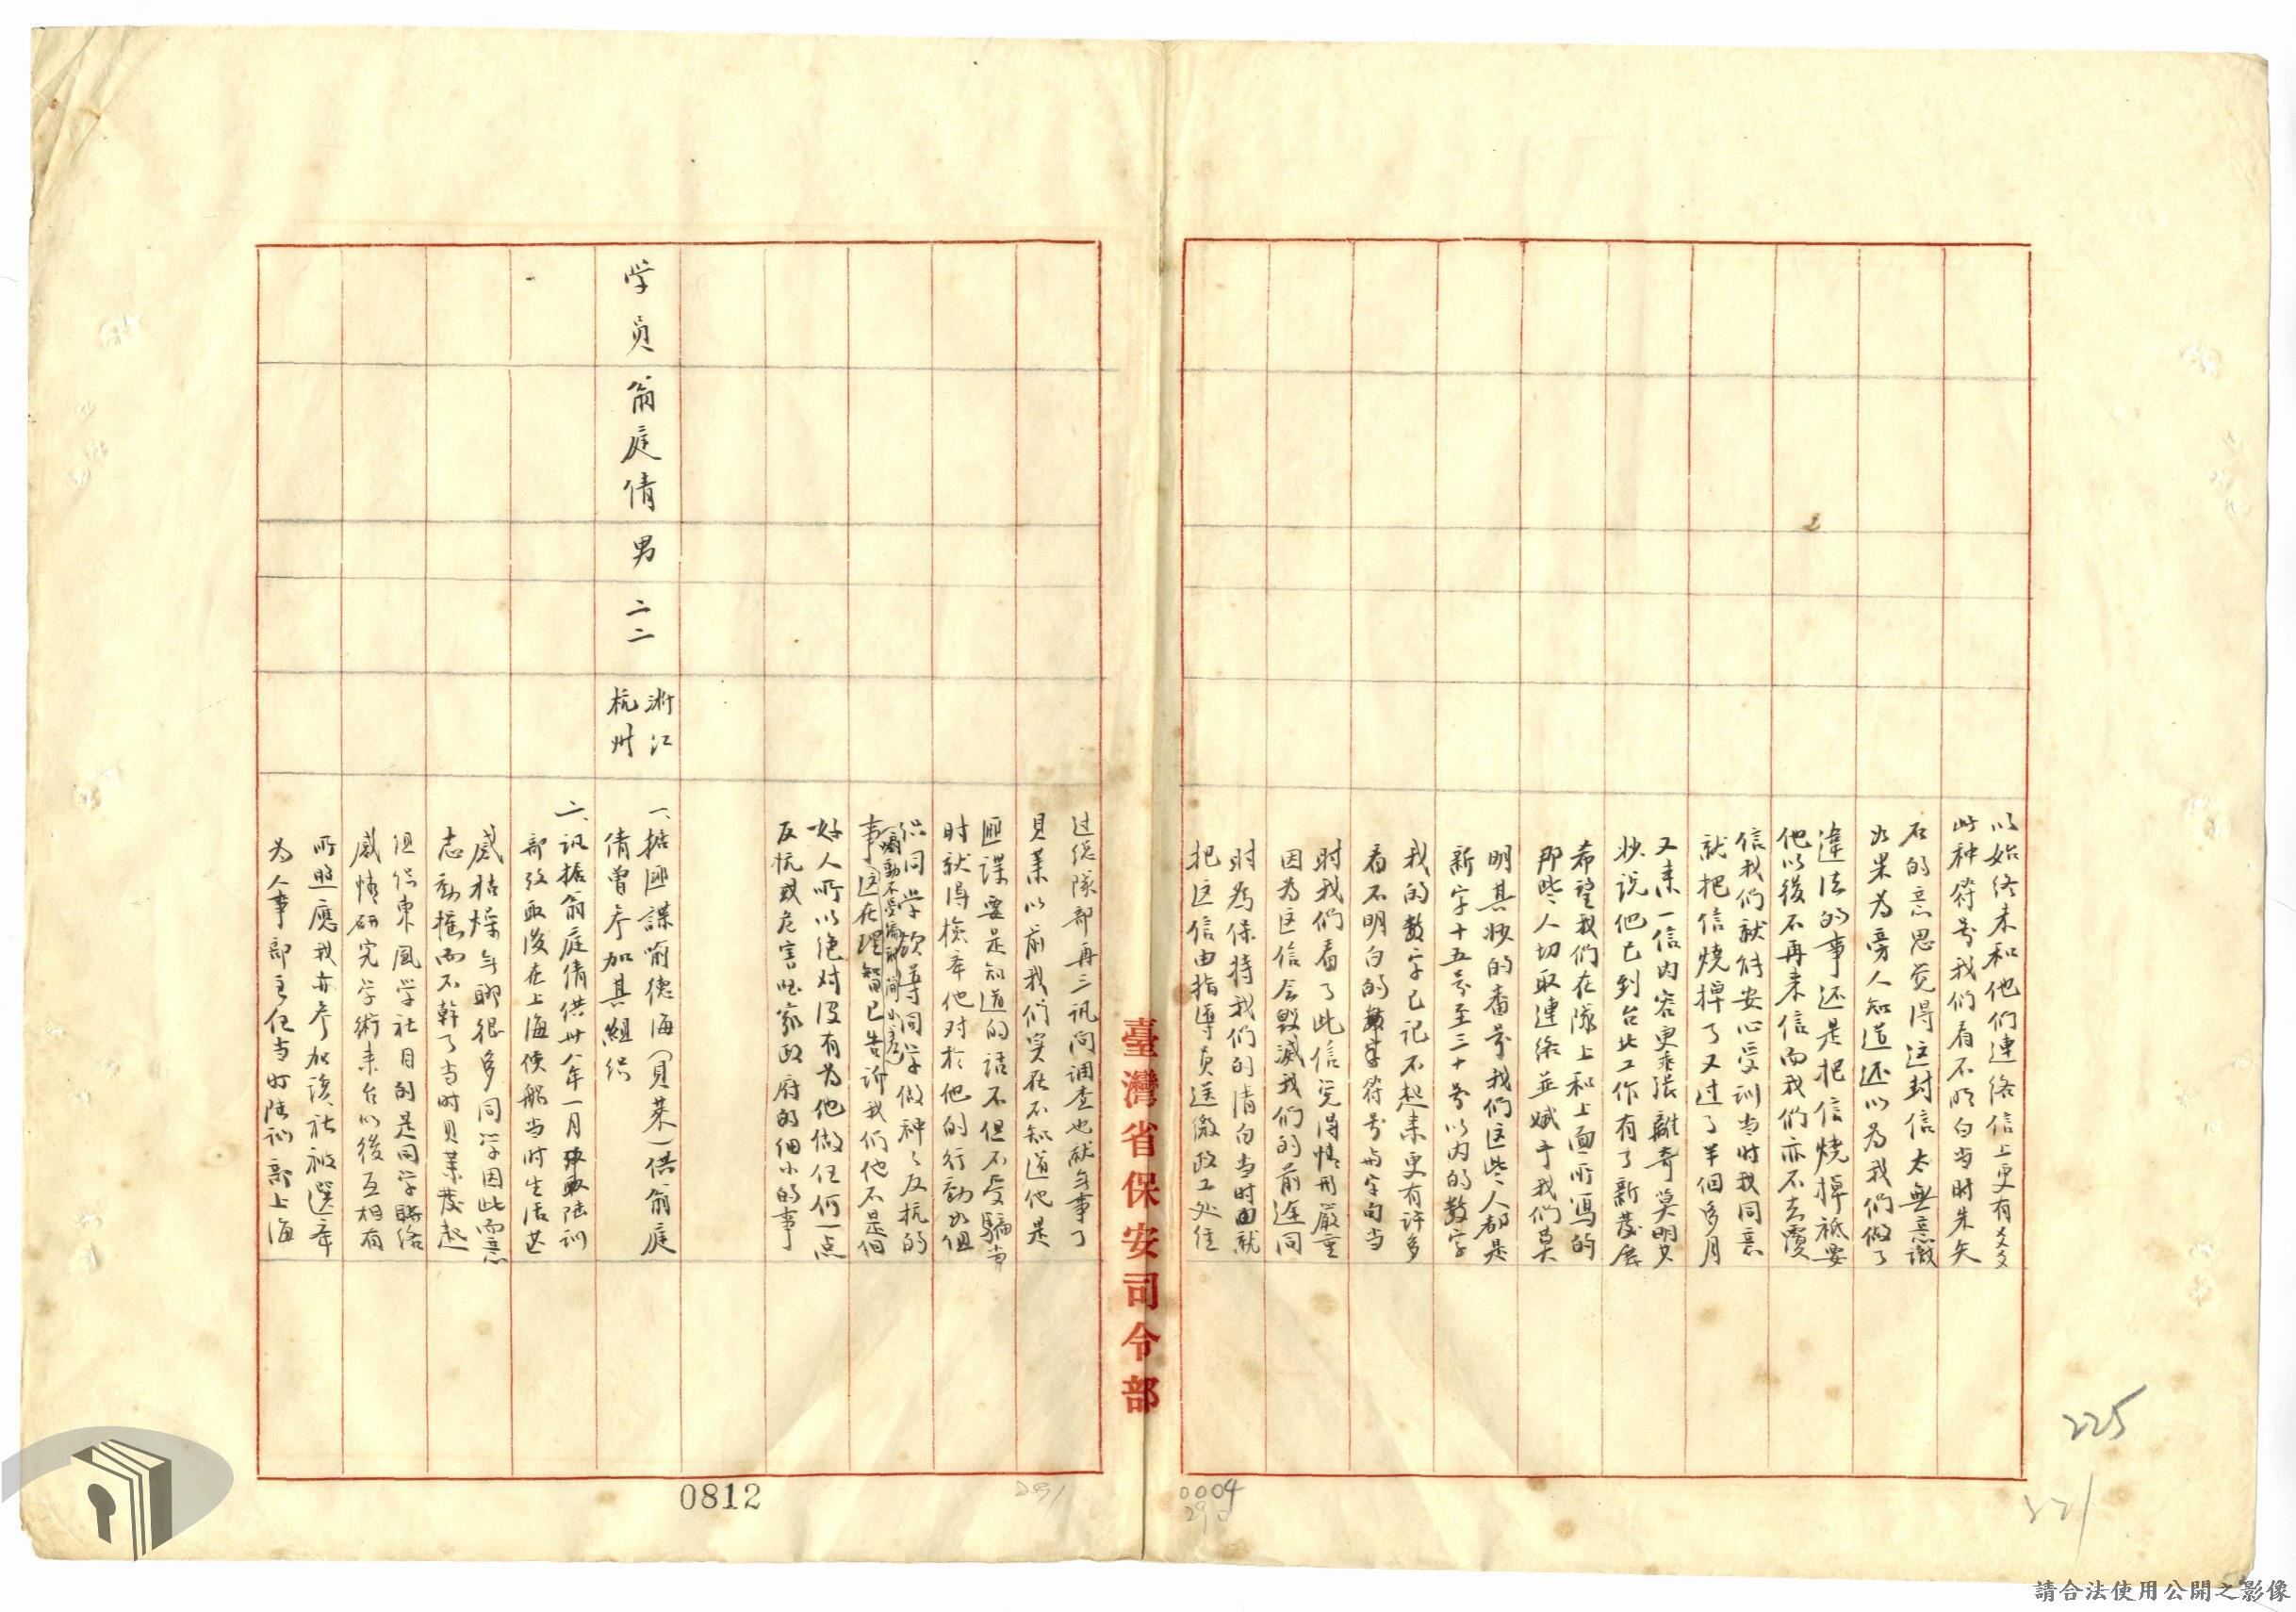 以始终未和他们連络信上更有××
此种符号我们看不明白当时朱矢
石的意思觉得这封信太無意識
如果为旁人知道还以为我们做了
違法的事还是把信烧掉祗要
他以後不再来信而我们亦不去覆
信我们就能安心受训当时我同意
就把信燒掉了又过了半個多月
又来一信内容更乖張離奇莫明其
妙说他已到台北工作有了新發展
希望我们在隊上和上面所写的
那些人切取連络並赋予我们莫
明其妙的番号我们这些人都是
新字十五号至三十号以内的数字
我的数字已记不起来更有许多
看不明白的符号与字句当
时我们看了此信觉得情形嚴重
因为这信会毁滅我们的前途同
时为保持我们的清白当时由就
把这信由指導員送繳政工处经
过总隊部再三讯问调查也就無事了
貝萊以前我们实在不知道他是
匪諜要是知道的话不但不受騙当
时就得檢举他对於他的行動如组
织同学領導同学做种々反抗的
事这在理智已告诉我们他不是個
好人所以绝对没有为他做任何一点
反抗或危害国家政府的细小的事
学员
翁庭倩
男
二二
浙江
杭州
一、據匪諜喻德海(貝萊)供翁庭
倩曾参加其組织
二、讯據翁庭倩供卅八年一月陸训
部考取後在上海候船当时生活甚
感枯燥無聊很多同学因此而意
志動摇而不幹了当时貝萊發起
组织東風学社目的是同学聯络
感情研究学術来台以後互相有
所照應我亦参加该社被選举
为人事部主任当时陸训部上海
臺灣省保安司令部
0812
291
0004
290
225
321
請合法使用公開之影像